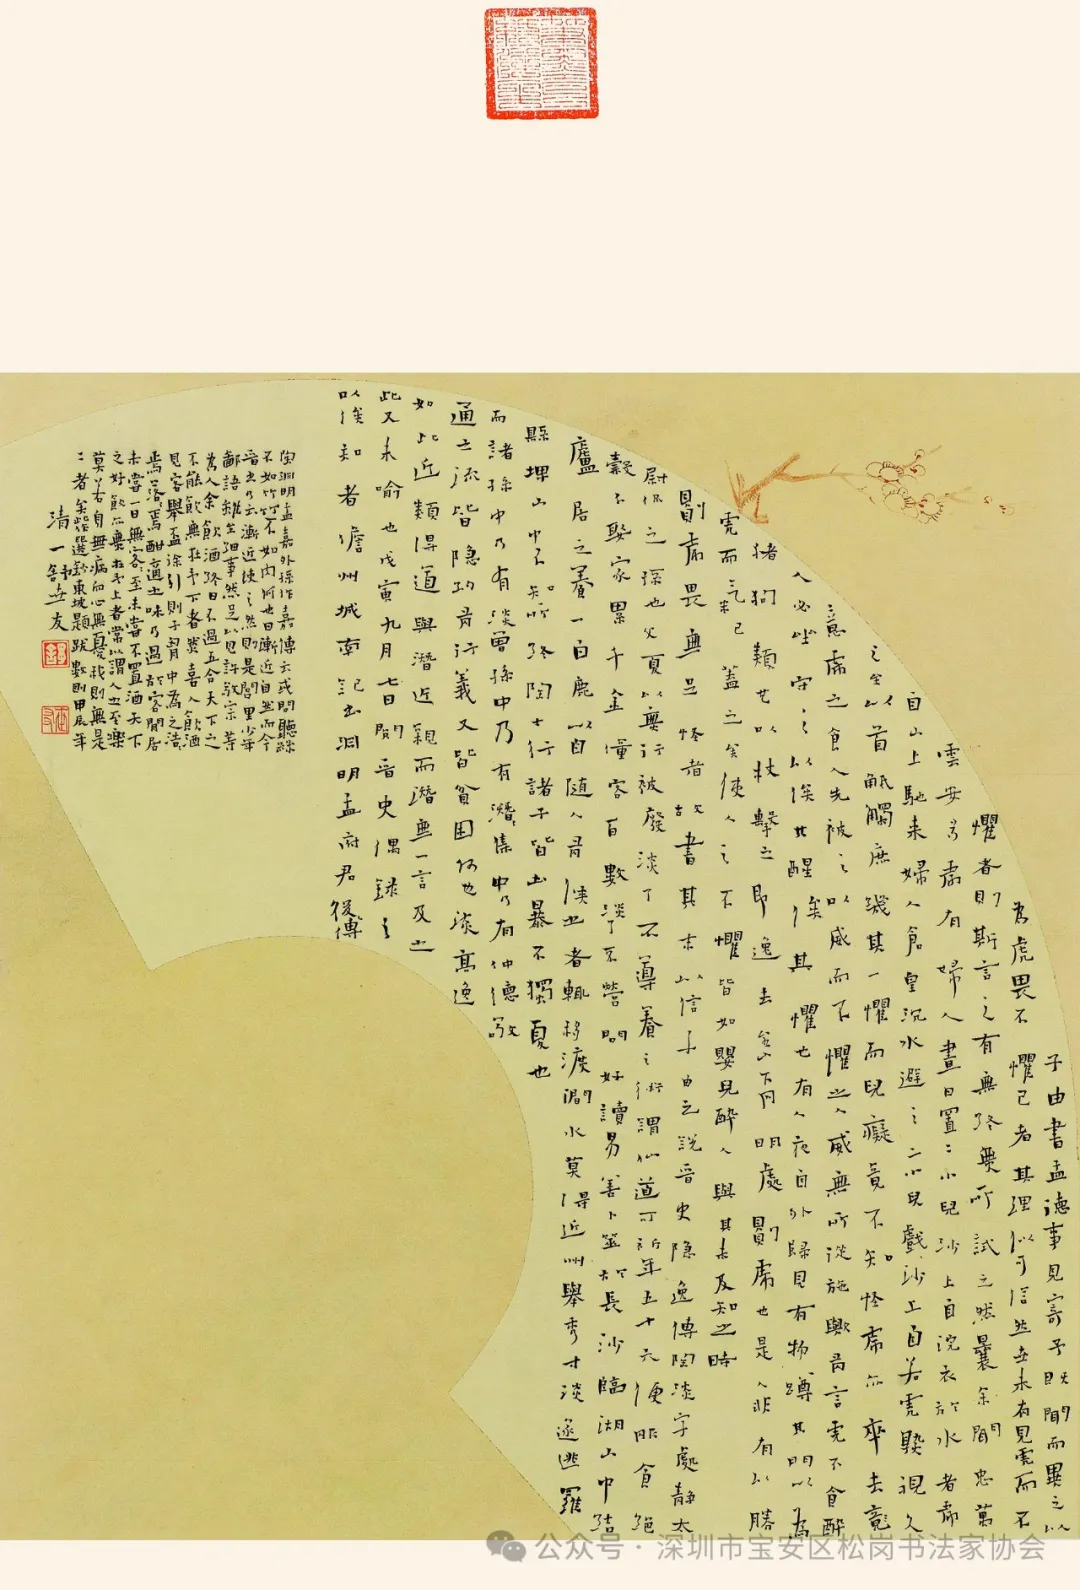 子由書孟德事見寄予既聞而異之以
為虎畏不懼己者其理似可信然世未有見虎而不
懼者則斯言之有無終無所試之然曩余聞忠萬
雲安多虎有婦人晝日置二小兒沙上自浣衣於水者虎
自山上馳来婦人倉皇沉水避之二小兒戲沙上自若虎熟視久
之至以首觝觸庶幾其一懼而兒癡竟不知怪虎亦卒去竟
意虎之食人先被之以威而不懼之人威無所從施歟有言虎不食醉
人必坐守之以俟其醒俟其懼也有人夜自外歸見有物蹲其門以為
猪狗類也以杖擊之即逸去至山下月明處則虎也是人非有以勝
虎而氣已蓋之矣使人之不懼皆如嬰兒醉人與其未及知之時
則虎畏無足怪者故書其末以信子由之説晉史隐逸傳陶淡字處静太
尉侃之孫也父夏以無行被廢淡了不導養之術謂仙道可祈年五十六便服食絕
穀不娶家累千金僮客百數淡了不營問好讀易善卜筮於長沙臨湖山中结
廬居之養一白鹿以自随人有候之者輒移渡澗水莫得近州舉秀才淡遂逃羅
縣埤山中不知所終陶士行諸子皆凶暴不獨夏也
而諸孫中乃有淡曾孫中乃有潛集中乃有仲德敬
通之流皆隐約有行義又皆貧困何也淡高逸
如此近類得道與潛近親而潛無一言及之
此又未喻也戊寅九月七日閱晉史偶録之
以俟知者儋州城南記出淵明孟府君後傳
陶淵明孟嘉外孫作嘉傳云或問聽絲
不如竹竹不如肉何也曰漸近自然而今
晉书乃云漸近使之然則是閭里少年
鄙語雖至细事然足以見許敬宗等
為人余飲酒終日不過五合天下之
不能飲無在予下者然喜人飲酒
見客舉盃徐引則予胷中為之浩
焉落焉酣適之味乃過於客閒居
未嘗一日無客至未嘗不置酒天下
之好飲亦無在予上者常以謂人之至樂
莫若身無病而心無憂我則無是
二者矣選録東坡題跋數則甲辰年
清一舍世友
公众号·深圳市宝安区松岗书法家协会